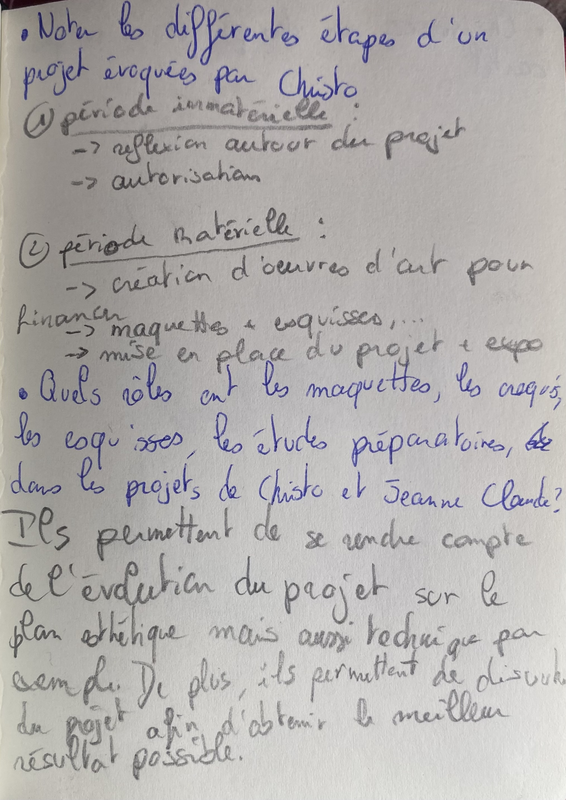 • Noter les différentes étapes d'un
projet évoquées par Christo
① période immatérielle :
-> reflexion autour du projet
-> autorisation
② période matérielle :
-> création d'oeuvres d'art pour
financer
-> maquettes + esquisses,...
-> mise en place du projet + expo
• Quels rôles ont les maquettes, les croquis,
les esquisses, les études préparatoires,
dans les projets de Christo et Jeanne Claude?
Ils permettent de se rendre compte
de l'évolution du projet sur le
plan esthétique mais aussi technique par
exemple. De plus, ils permettent de discuter
du projet afin d'obtenir le meilleur
résultat possible.